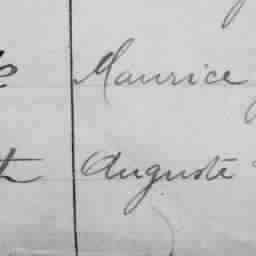 Maurice
Auguste